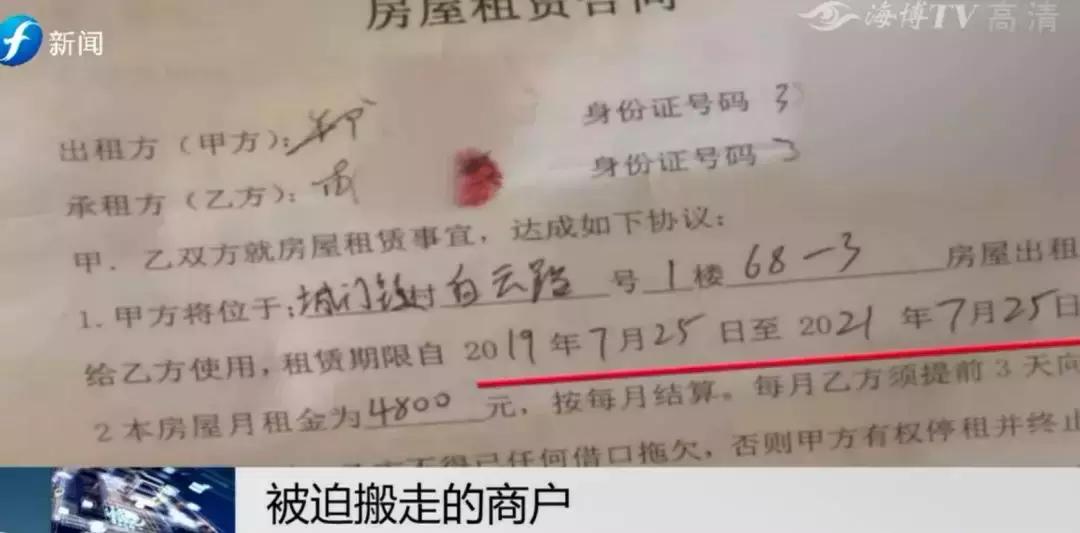 房屋租赁合同
海博TV 高清
新闻
出租方（甲方）：
身份证号码 3
承租方（乙方）：
身份证号码 3
甲．乙双方就房屋租赁事宜，达成如下协议：
1.甲方将位于：城门镇村白云路 号 1 楼 68-3 房屋出租
给乙方使用，租赁期限自 2019 年 7 月 25 日至 2021 年 7 月 25 日
2 本房屋月租金为 4800 元，按每月结算。每月乙方须提前 3 天向
不得已任何借口拖欠，否则甲方有权停租并终止
被迫搬走的商户